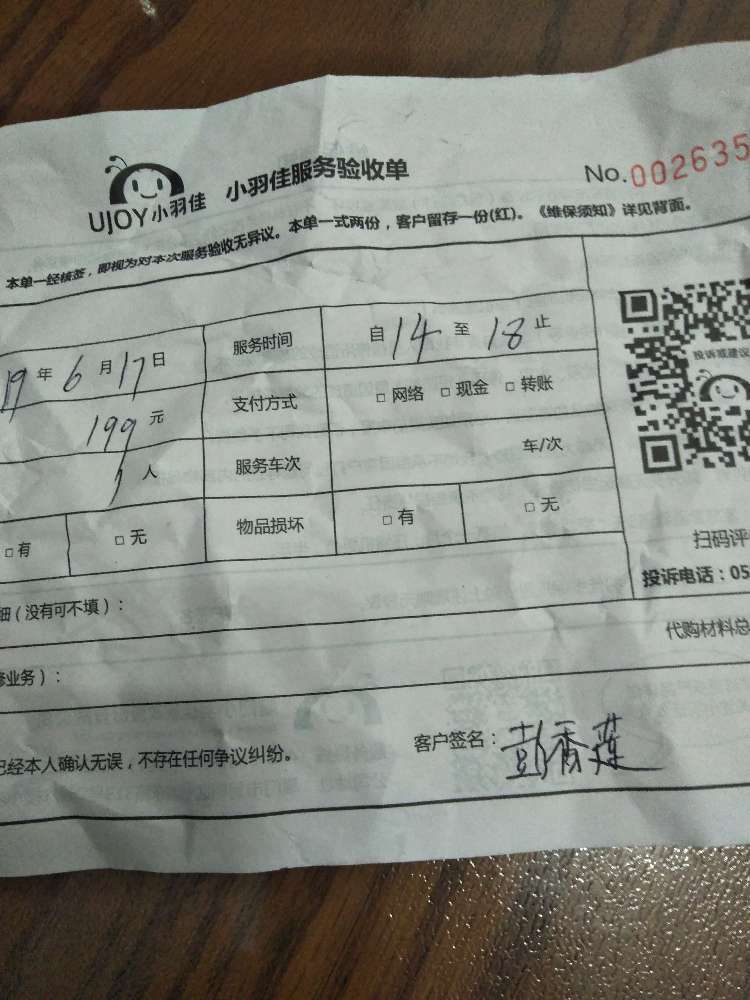 UJOY小羽佳 小羽佳服务验收单 No.002635
本单一经核签,即视为对本次服务验收无异议。本单一式两份,客户留存一份(红)。《维保须知》详见背面。
19年6月17日 服务时间 自14至18止
投诉或建议
199元 支付方式 □网络 □现金 □转账
1人 服务车次 车/次
□有 □无 物品损坏 □有 □无
扫码评
投诉电话:05
细(没有可不填):
代购材料总
修业务):
已经本人确认无误,不存在任何争议纠纷。 客户签名:彭香莲